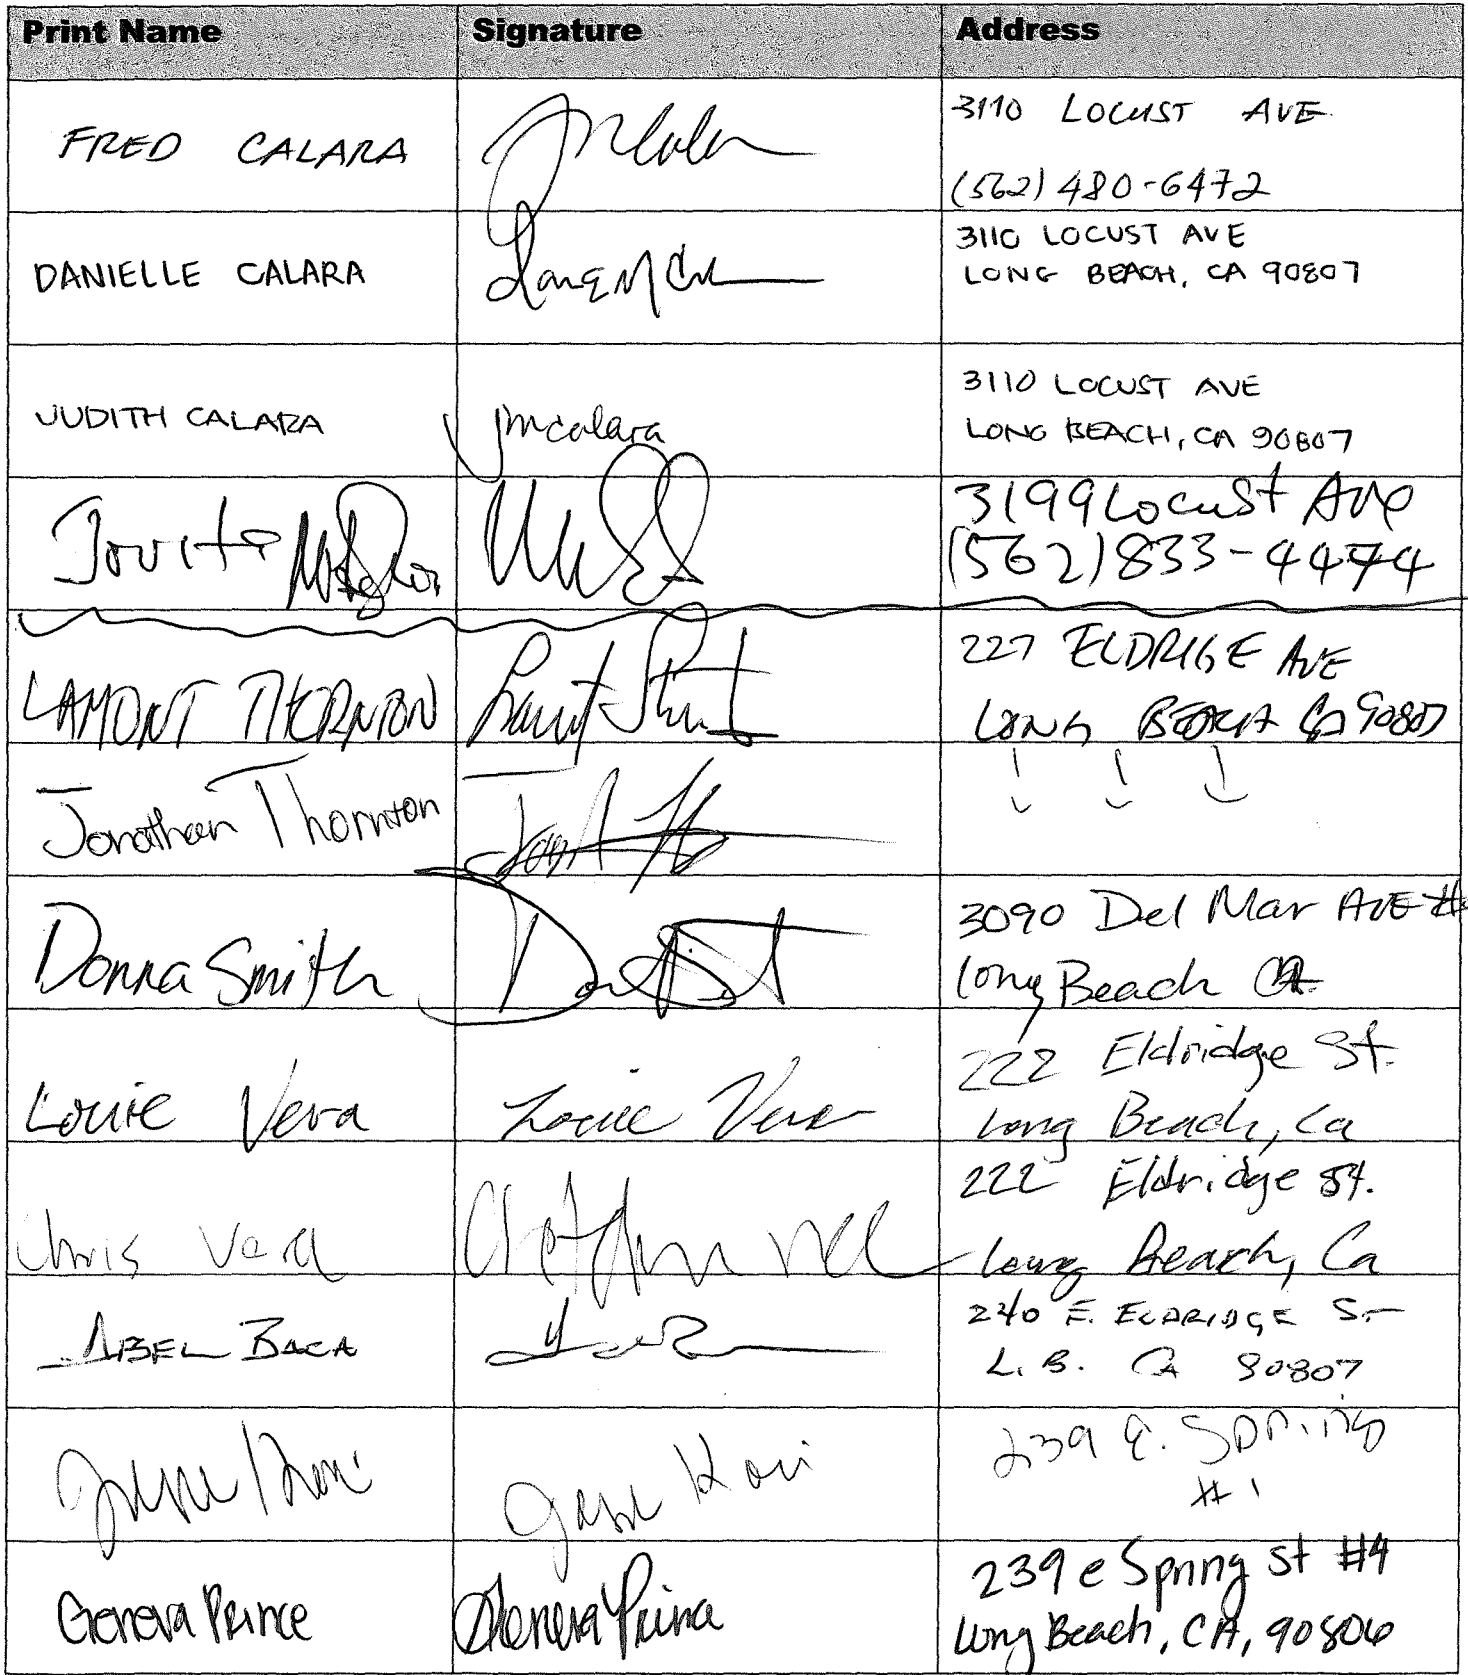 Print Name Signature Address
FRED CALARA
3110 LOCUST AVE.
(562) 480-6472
DANIELLE CALARA
3110 LOCUST AVE
LONG BEACH, CA 90807
JUDITH CALARA jmcalara
3110 LOCUST AVE
LONG BEACH, CA 90807
Jovita
3199 Locust Ave
(562) 833-4474
LAMONT THORNTON
227 ELDRIGE AVE
LONG BEACH CA 90807
Jonathan Thornton
Donna Smith
3090 Del Mar AVE #
Long Beach CA.
Louie Vera Louie Vera
222 Eldridge St.
Long Beach, Ca
Chris Vera
222 Eldridge St.
Long Beach, Ca
ABEL BACA
240 E. ELDRIDGE ST
L.B. CA 90807
239 E. Spring
#1
Geneva Prince Geneva Prince
239 e Spring st #4
Long Beach, CA, 90806